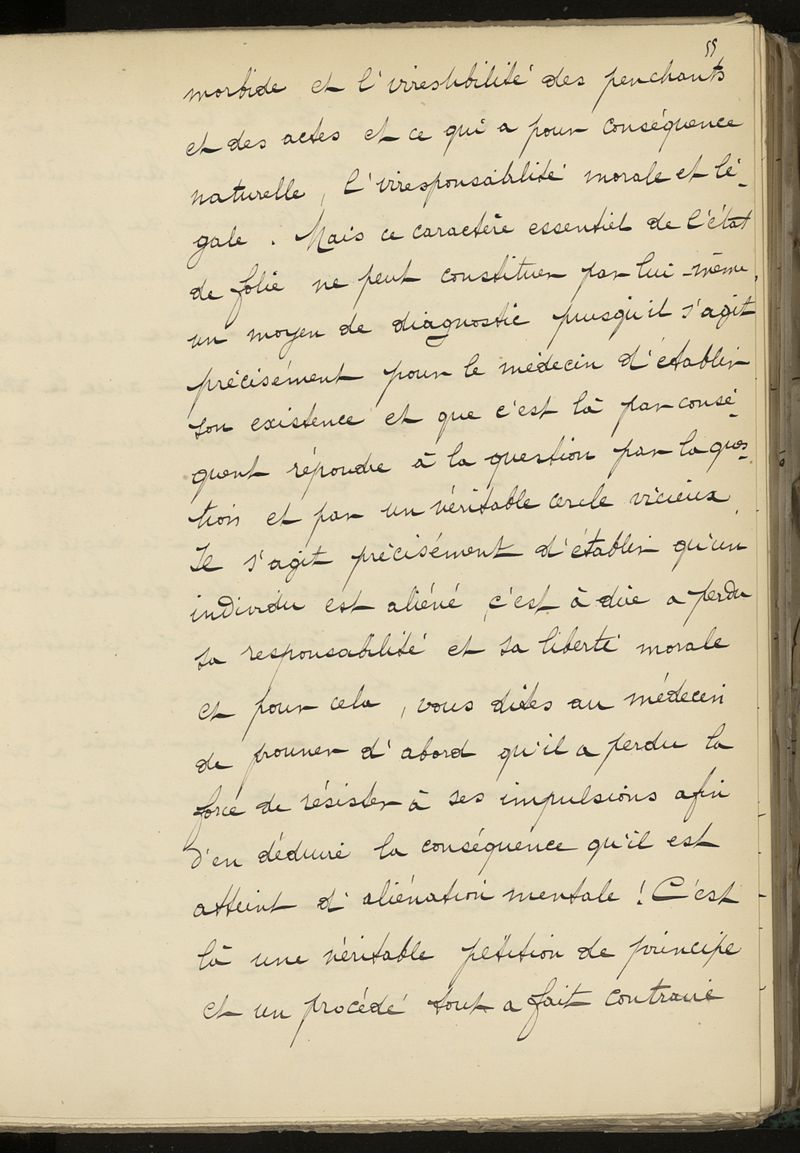 55
morbide et l'irrestibilité des penchants
et des actes et ce qui a pour conséquence
naturelle, l'irresponsabilité morale et lé-
gale. Mais ce caractère essentiel de l'état
de folie ne peut constituer par lui-même,
un moyen de diagnostic puisqu'il s'agit
précisément pour le médecin d'établir
son existence et que c'est là par consé-
quent répondre à la question par la ques-
tion et par un véritable cercle vicieux.
Il s'agit précisément d'établir qu'un
individu est aliéné, c'est à dire a perdu
sa responsabilité et sa liberté morale
et pour cela, vous dites au médecin
de prouver d'abord qu'il a perdu la
force de résister à ses impulsions afin
d'en déduire la conséquence qu'il est
atteint d'aliénation mentale ! C'est
là une véritable pétition de principe
et un procédé tout a fait contraire